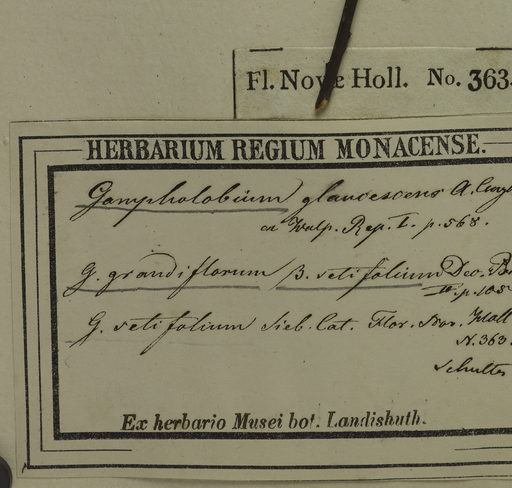 Fl. Novæ Holl. No. 363.
HERBARIUM REGIUM MONACENSE.
Gompholobium glaucescens A. Cung
in Walp. Rep. I. p. 568.
G. grandiflorum β. setifolium Dec.
II. p. 105
G. setifolium Sieb. Cat. Flor. Nov. Holl
N. 363.
Schultes
Ex herbario Musei bot. Landishuth.